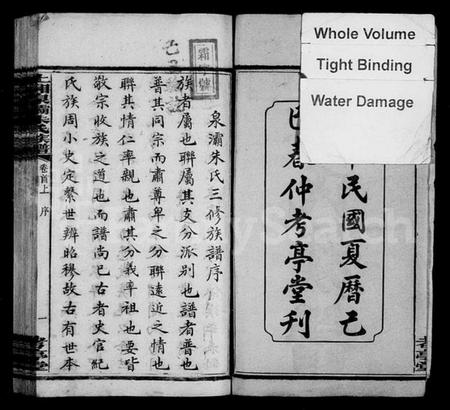 Whole Volume
Tight Binding
Water Damage
民國夏曆己
巳春仲考亭堂刊
考亭堂
泉灞朱氏三修族譜序
族者屬也聯屬其支分派別也譜者普也
普其同宗而肅尊卑之分聯遠近之情也
聯其情仁率親也肅其分義率祖也要皆
敬宗收族之道也而譜尚已古者史官紀
氏族周小史定繫世辨昭穆故古有世本
朱氏族譜
卷首上
序
一
考亭堂